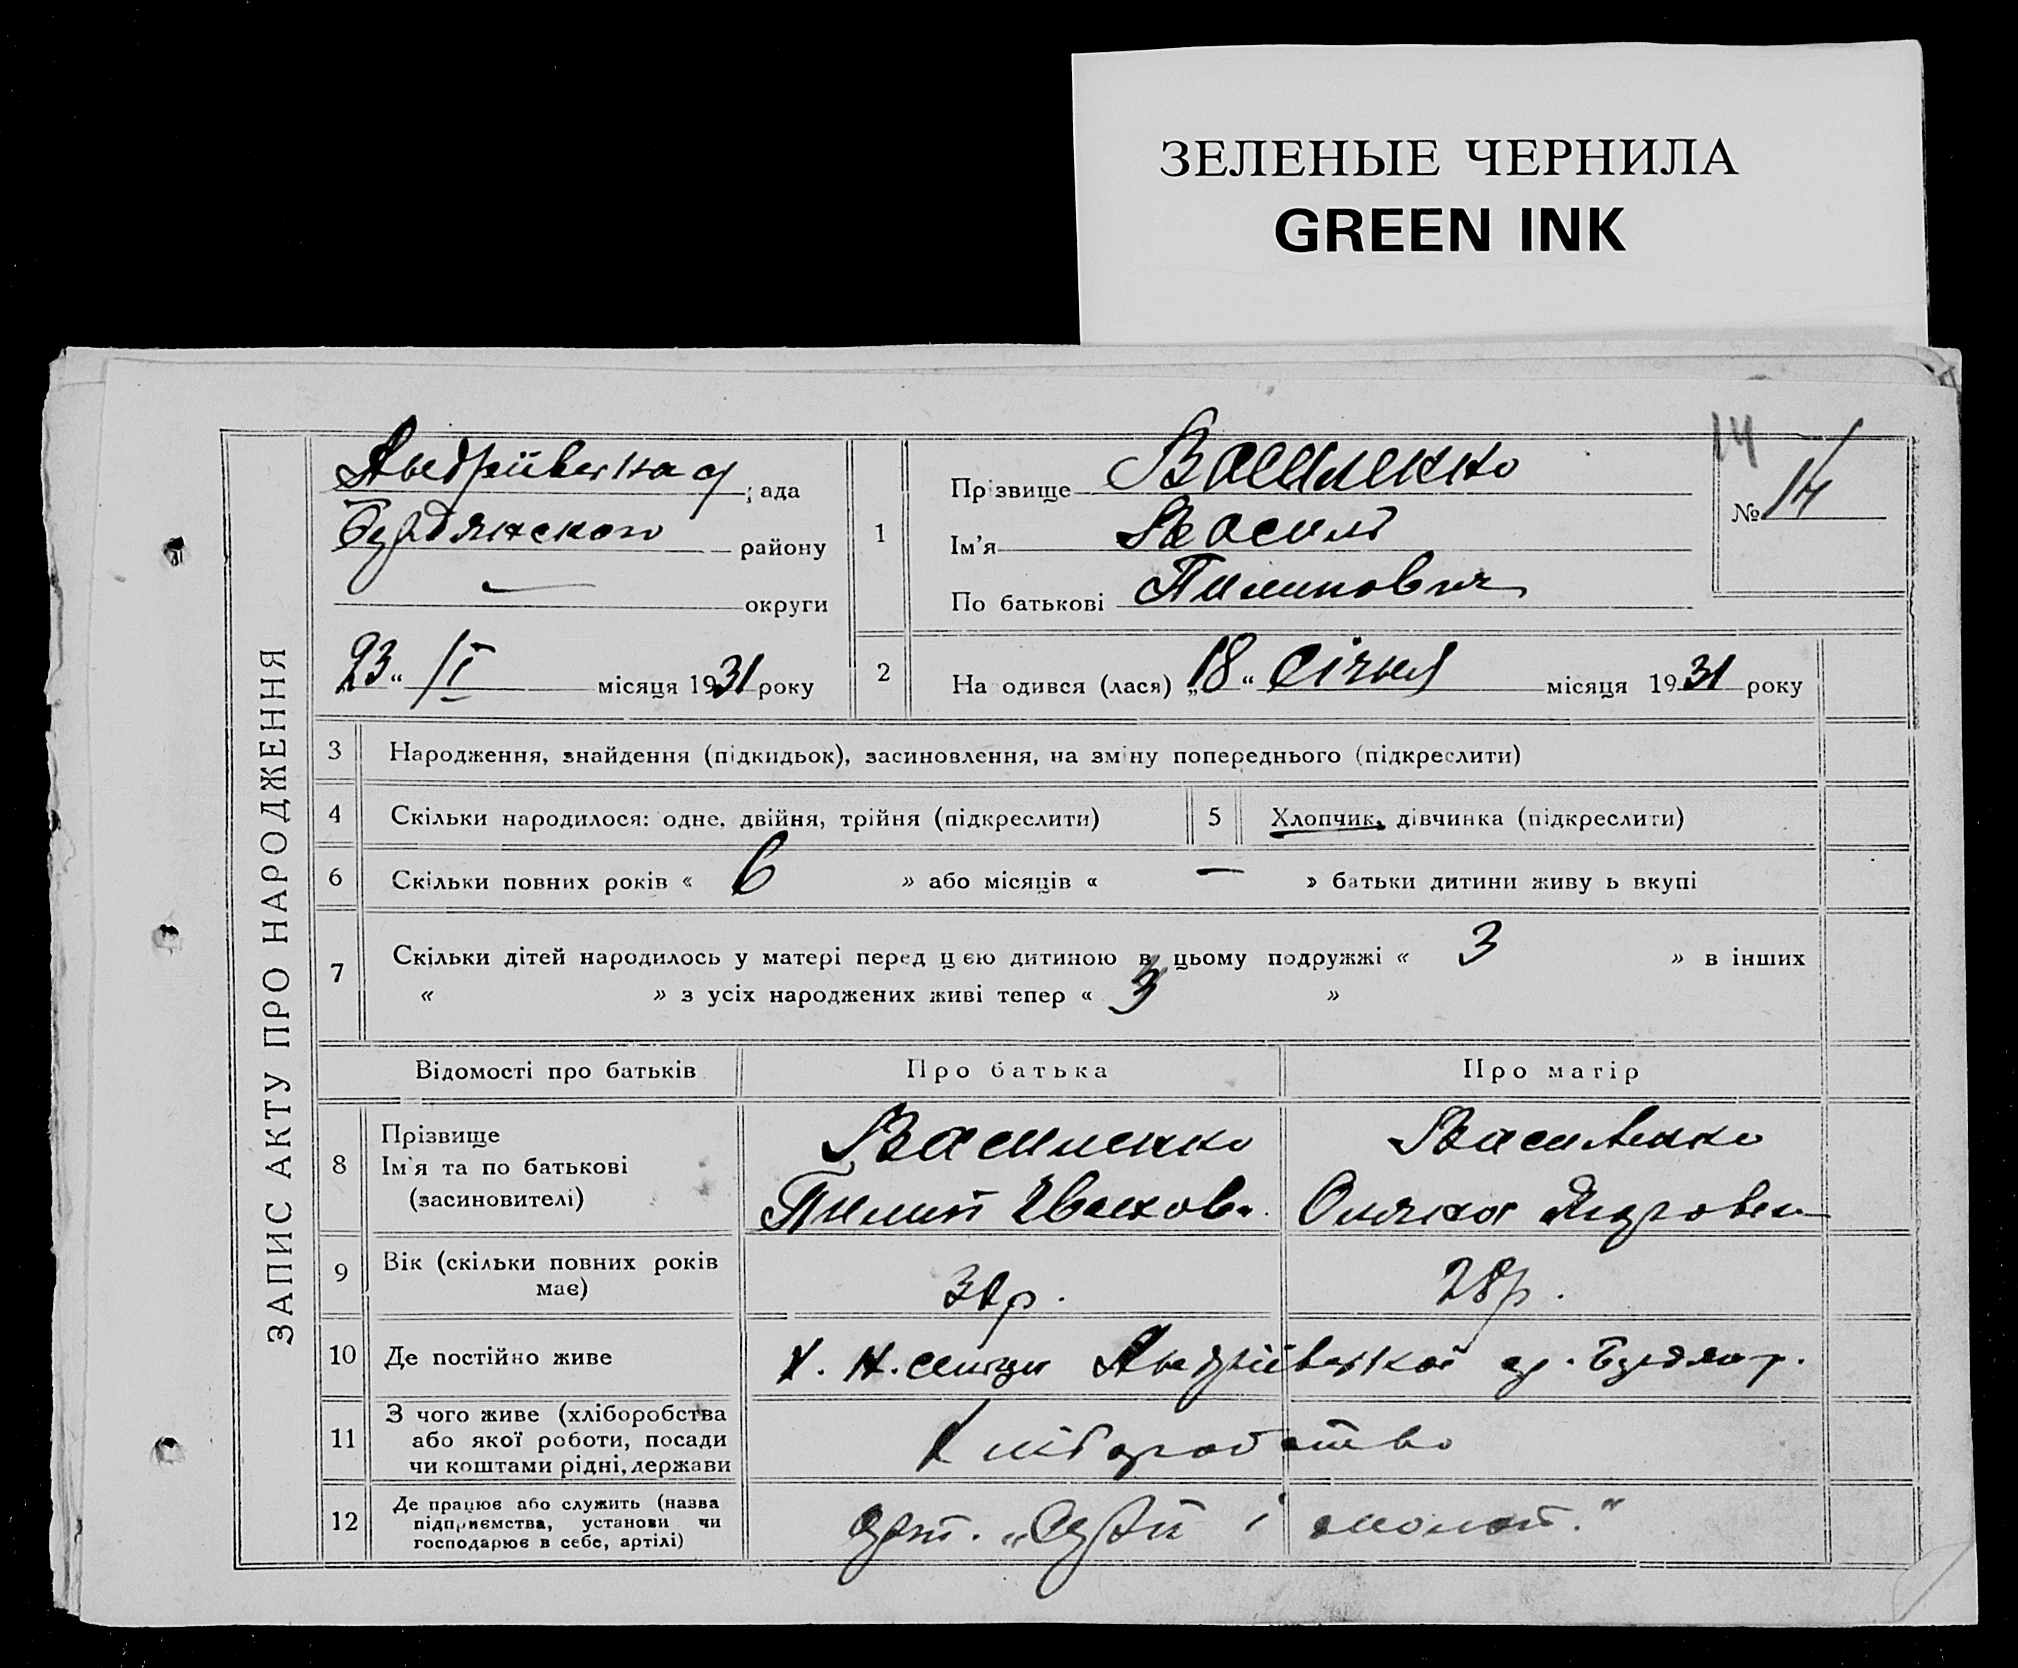 ЗЕЛЕНЫЕ ЧЕРНИЛА
GREEN INK
ЗАПИС АКТУ ПРО НАРОДЖЕННЯ
рада
Бердянского району
— округи
23 " /І місяця 1931 року
14
№ 14
1 Прізвище Василенко
Ім'я Василь
По батькові Пилипович
2 Народився (лася) „18 " січня місяця 1931 року
3 Народження, знайдення (підкидьок), засиновлення, на зміну попереднього (підкреслити)
4 Скільки народилося: одне, двійня, трійня (підкреслити)
5 Хлопчик, дівчинка (підкреслити)
6 Скільки повних років « 6 » або місяців « — » батьки дитини живуть вкупі
7 Скільки дітей народилось у матері перед цією дитиною в цьому подружжі « 3 » в інших
« » з усіх народжених живі тепер « 3 »
Відомості про батьків Про батька Про матір
8 Прізвище
Ім'я та по батькові
(засновителі)
Василенко
Пилип Іванов.
Василенко
9 Вік (скільки повних років
має)
28 р.
10 Де постійно живе
11 З чого живе (хліборобства
або якої роботи, посади
чи коштами рідні, держави
Хліборобство
12 Де працює або служить (назва
підприємства, установи чи
господарює в себе, артілі)
арт. „Серп і молот."